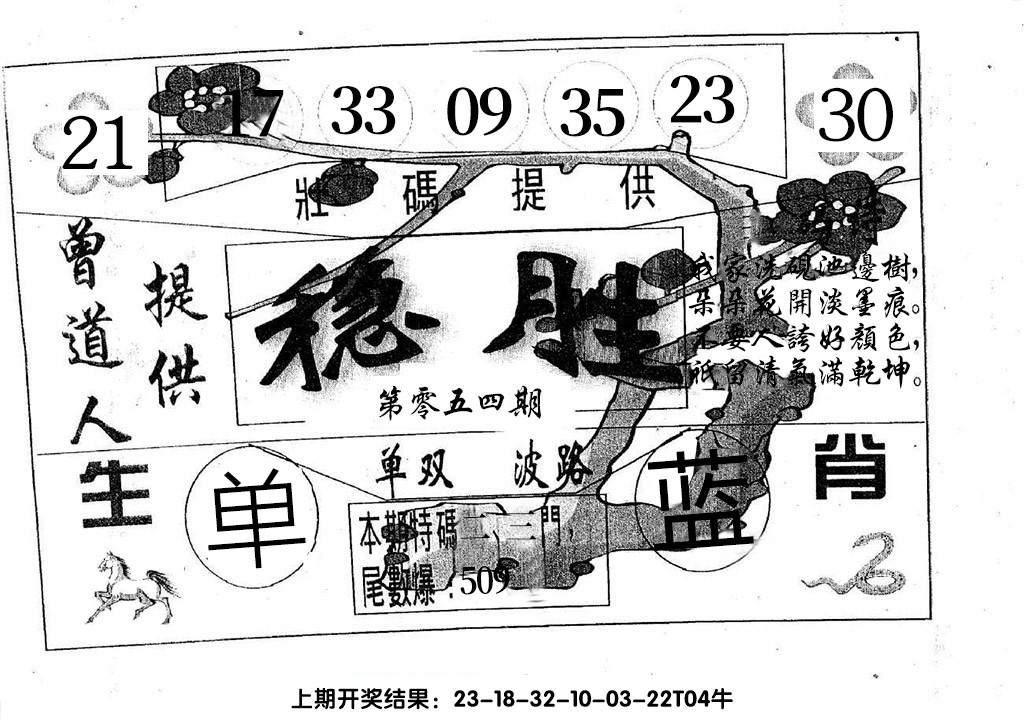 21 17 33 09 35 23 30
壯碼提供
曾道人
提供
稳胜
第零五四期
我家洗硯池邊樹，
朵朵花開淡墨痕。
不要人誇好顔色，
祇留清氣滿乾坤。
单双 波路
生肖
单
蓝
本期特碼二、三門，
尾數爆：509
上期开奖结果：23-18-32-10-03-22T04牛